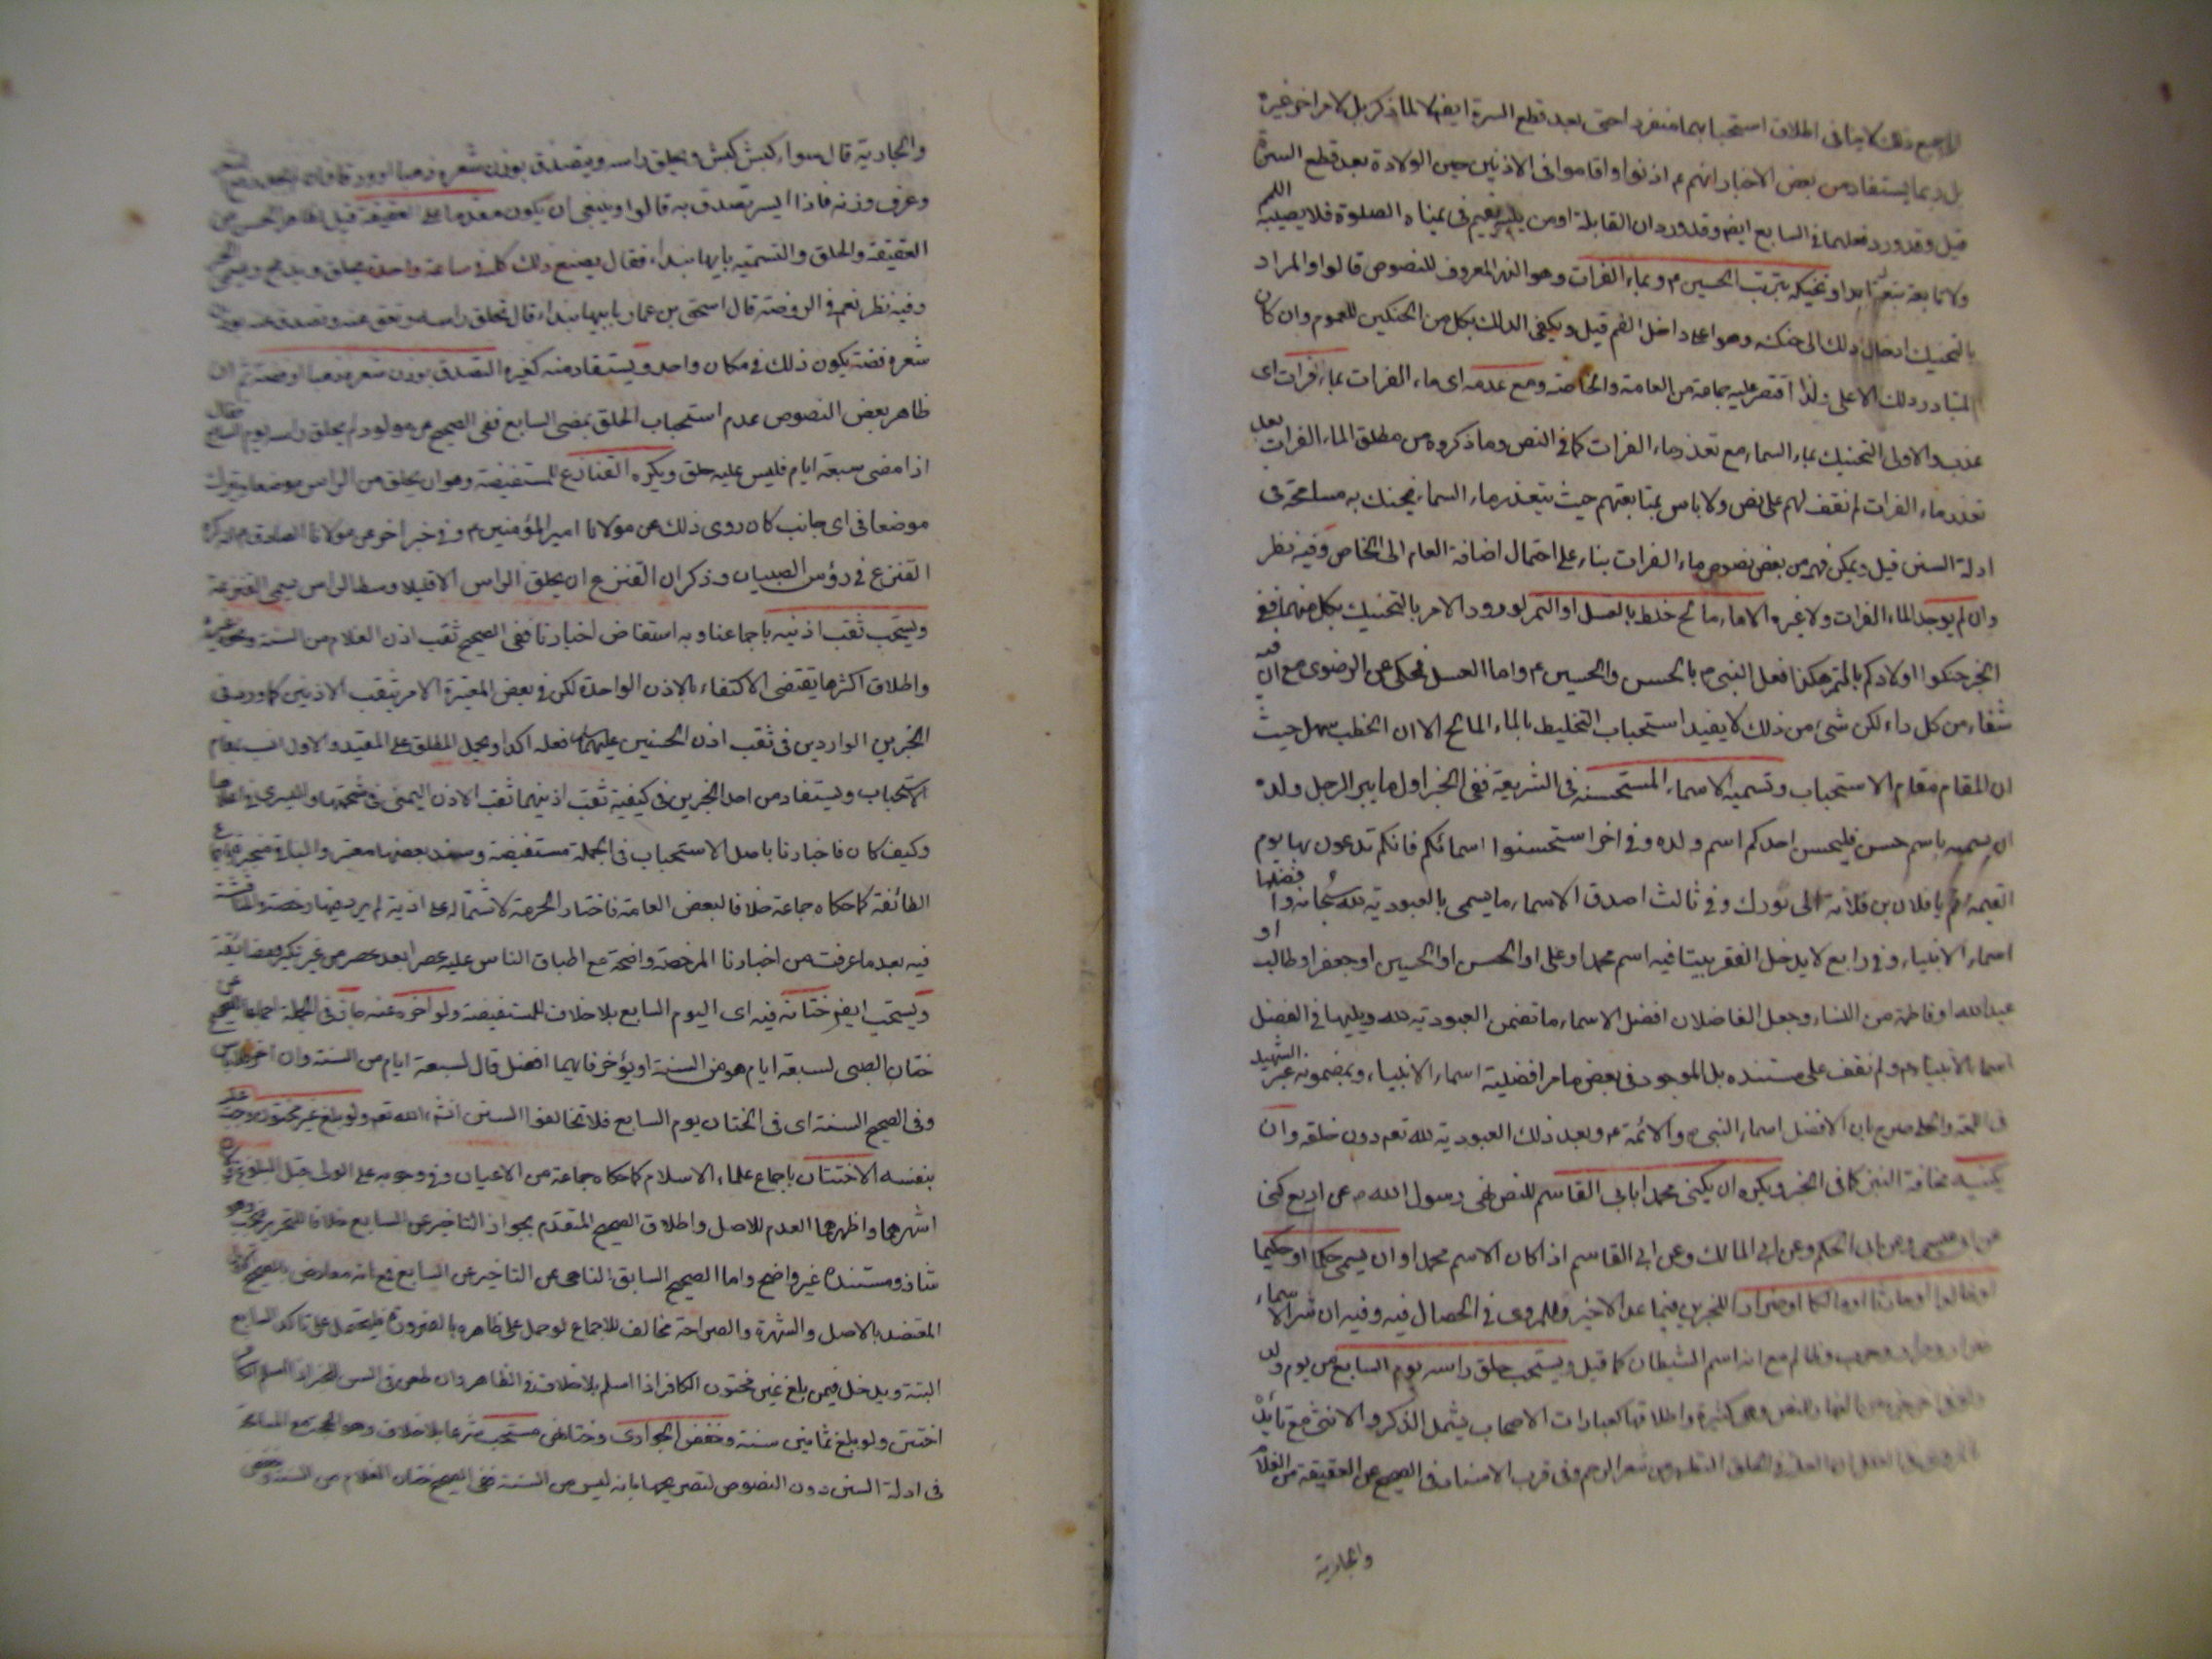 ذلك لا ينافى اطلاق استحبابهما منفرد احتى بعد قطع السرة ايضا لا لما ذكر بل لامر اخر غيره
بل ربما يستفاد من بعض الاخبار انهم ع اذنوا واقاموا فى الاذنين حين الولادة بعد قطع السرة
قيل وقد ورد فعلهما فى السابع ايضا وقد ورد ان القابلة او من يليه يقيم فى يمناه الصلوة فلا يصيبه اللمم
ولا تابعة ابدا وتحنيكه بتربة الحسين ع وبماء الفرات وهو النهر المعروف للنصوص قالوا والمراد
بالتحنيك ادخال ذلك الى حنكه وهو اعلا داخل الفم قيل ويكفى الدلك بكل من الحنكين للعموم وان كان
المتبادر دلك الاعلى ولذا اقتصر عليه جماعة من العامة والخاصة ومع عدمه اى ماء الفرات بماء فرات اى
عذب والاولى التحنيك بماء السماء مع تعذر ماء الفرات كما فى النص وما ذكروه من مطلق الماء الفرات بعد
تعذر ماء الفرات لم نقف لهم على نص ولا باس بمتابعتهم حيث يتعذر ماء السماء فيحنك به مسامحة فى
ادلة السنن قيل ويمكن فهمه من بعض نصوص ماء الفرات بناء على احتمال اضافة العام الى الخاص وفيه نظر
وان لم يوجد الماء الفرات ولا غيره الا ماء مالح خلط بالعسل او التمر لورود الامر بالتحنيك بكل منهما ففى
الخبر حنكوا اولادكم بالتمر هكذا فعل النبى ص بالحسن والحسين ع واما العسل فمحكى عن الرضوى مع ان فيه
شفاء من كل داء لكن شئ من ذلك لا يفيد استحباب التخليط بالماء المالح الا ان الخطب سهل حيث
ان المقام مقام الاستحباب وتسميه الاسماء المستحسنه فى الشريعة ففى الخبر اول ما يبر الرجل ولده
ان يسميه باسم حسن فليحسن احدكم اسم ولده وفى اخر استحسنوا اسمائكم فانكم تدعون بها يوم
القيمة قم يا فلان بن فلانة الى نورك وفى ثالث اصدق الاسماء ما يسمى بالعبودية لله سبحانه وافضلها
اسماء الانبياء وفى رابع لا يدخل الفقر بيتا فيه اسم محمد او على او الحسن او الحسين او جعفر او طالب او
عبد الله او فاطمة من النساء وجعل الفاضلان افضل الاسماء ما تضمن العبودية لله ويليها فى الفضل
اسماء الانبياء ع ولم نقف على مستنده بل الموجود فى بعض ما مر افضلية اسماء الانبياء وبمضمونه عبر الشهيد
فى اللمعة والحلى صرح بان الافضل اسماء النبى ص والائمة ع وبعد ذلك العبودية لله تعم دون خلقه وان
يكنيه مخافة النبز كما فى الخبر ويكره ان يكنى محمدا بابى القاسم للنص نهى رسول الله ص عن اربع كنى
عن ابى عيسى وعن ابى الحكم وعن ابى المالك وعن ابى القاسم اذا كان الاسم محمدا وان يسمى حكما او حكيما
او خالدا او حارثا او مالكا او ضرارا للخبرين فيما عدا الاخير وللمروى فى الخصال فيه وفيه ان شر الاسماء
ضرار ومرة وحرب وظالم مع انه اسم الشيطان كما قيل ويستحب حلق راسه يوم السابع من يوم ولد
للنصوص وهى كثيرة واطلاقها كعبارات الاصحاب يشمل الذكر والانثى مع تايد
التطهير من شعر الرحم وفى قرب الاسناد فى الصحيح عن العقيقة عن الغلام
والجارية
والجارية قال سواء كبش كبش ويحلق راسه ويتصدق بوزن شعره ذهبا او ورقا فان لم يجد رفع الشعر
وعرف وزنه فاذا ايسر تصدق به قالوا وينبغى ان يكون مقدما على العقيقة قيل لظاهر الحسن عن
العقيقة والحلق والتسمية بايها يبداء فقال يصنع ذلك كله فى ساعة واحدة يحلق ويذبح ويسمى الخبر
وفيه نظر نعم فى الروضة قال اسحق بن عمار بايهما يبداء قال تحلق راسه وتعق عنه وتصدق بوزن
شعره فضة يكون ذلك فى مكان واحد ويستفاد منه كغيره التصدق بوزن شعره ذهبا او فضة ثم ان
ظاهر بعض النصوص عدم استحباب الحلق بمضى السابع ففى الصحيح عن مولود لم يحلق راسه يوم السابع فقال
اذا مضى سبعة ايام فليس عليه حلق ويكره القنازع للمستفيضة وهو ان يحلق من الراس موضعا ويترك
موضعا فى اى جانب كان روى ذلك عن مولانا امير المؤمنين ع وفى خبر اخر عن مولانا الصادق ع انه كره
القنزع فى رؤس الصبيان وذكر ان القنزع ان يحلق الراس الا قليلا وسط الراس يسمى القنزعة
ويستحب ثقب اذنيه باجماعنا وبه استفاض اخبارنا ففى الصحيح ثقب اذن الغلام من السنة ونحوه غيره
واطلاق اكثرها يقتضى الاكتفاء بالاذن الواحدة لكن فى بعض المعتبرة الامر بثقب الاذنين كما ورد فى
الخبرين الواردين فى ثقب اذن الحسنين عليهما السلام فعله اكد او يحمل المطلق على المقيد والاول انسب بمقام
الاستحباب ويستفاد من احد الخبرين فى كيفية ثقب اذنيهما ثقب الاذن اليمنى فى شحمتها واليسرى فى اعلاها
وكيف كان فاخبارنا باصل الاستحباب فى الجملة مستفيضة وسند بعضها معتبر والباقى منجبر
الطائفة كما حكاه جماعة خلافا لبعض العامة فاختار الحرمة لاشتماله على اذية لم يرد فيها رخصة والمناقشة
فيه بعد ما عرفت من اخبارنا المرخصة واضحة مع اطباق الناس عليه عصرا بعد عصر من غير نكير
ويستحب ايضا ختانه فيه اى اليوم السابع بلا خلاف للمستفيضة ولو اخره عنه جاز فى الجملة اجماعا ففى الصحيح عن
ختان الصبى لسبعة ايام هو من السنة او يؤخر فايهما افضل قال لسبعة ايام من السنة وان اخر فلا باس
وفى الصحيح السنة اى فى الختان يوم السابع فلا تخالفوا السنن انشاء الله تعم ولو بلغ غير مختون وجب عليه
بنفسه الاختتان باجماع علماء الاسلام كما حكاه جماعة من الاعيان وفى وجوبه على الولى قبل البلوغ
اشهرهما واظهرهما العدم للاصل واطلاق الصحيح المتقدم بجواز التاخير عن السابع خلافا للتحرير فيجب وهو
شاذ ومستنده غير واضح واما الصحيح السابق الناهى عن التاخير عن السابع فمع انه معارض بالصحيح
المعتضد بالاصل والشهرة والصراحة مخالف للاجماع لو حمل على ظاهره بالضرورة فليحمل على تاكد السابع
البتة ويدخل فيمن بلغ غير مختون الكافر اذا اسلم بلا خلاف فى الظاهر وان طعن فى السن للخبر اذا اسلم الرجل
اختتن ولو بلغ ثمانين سنة وخفض الجوارى وختانهن مستحب شرعا بلا خلاف وهو الحجة مع المسامحة
فى ادلة السنن دون النصوص لتصريحها بانه ليس من السنة ففى الصحيح ختان الغلام من السنة وخفض